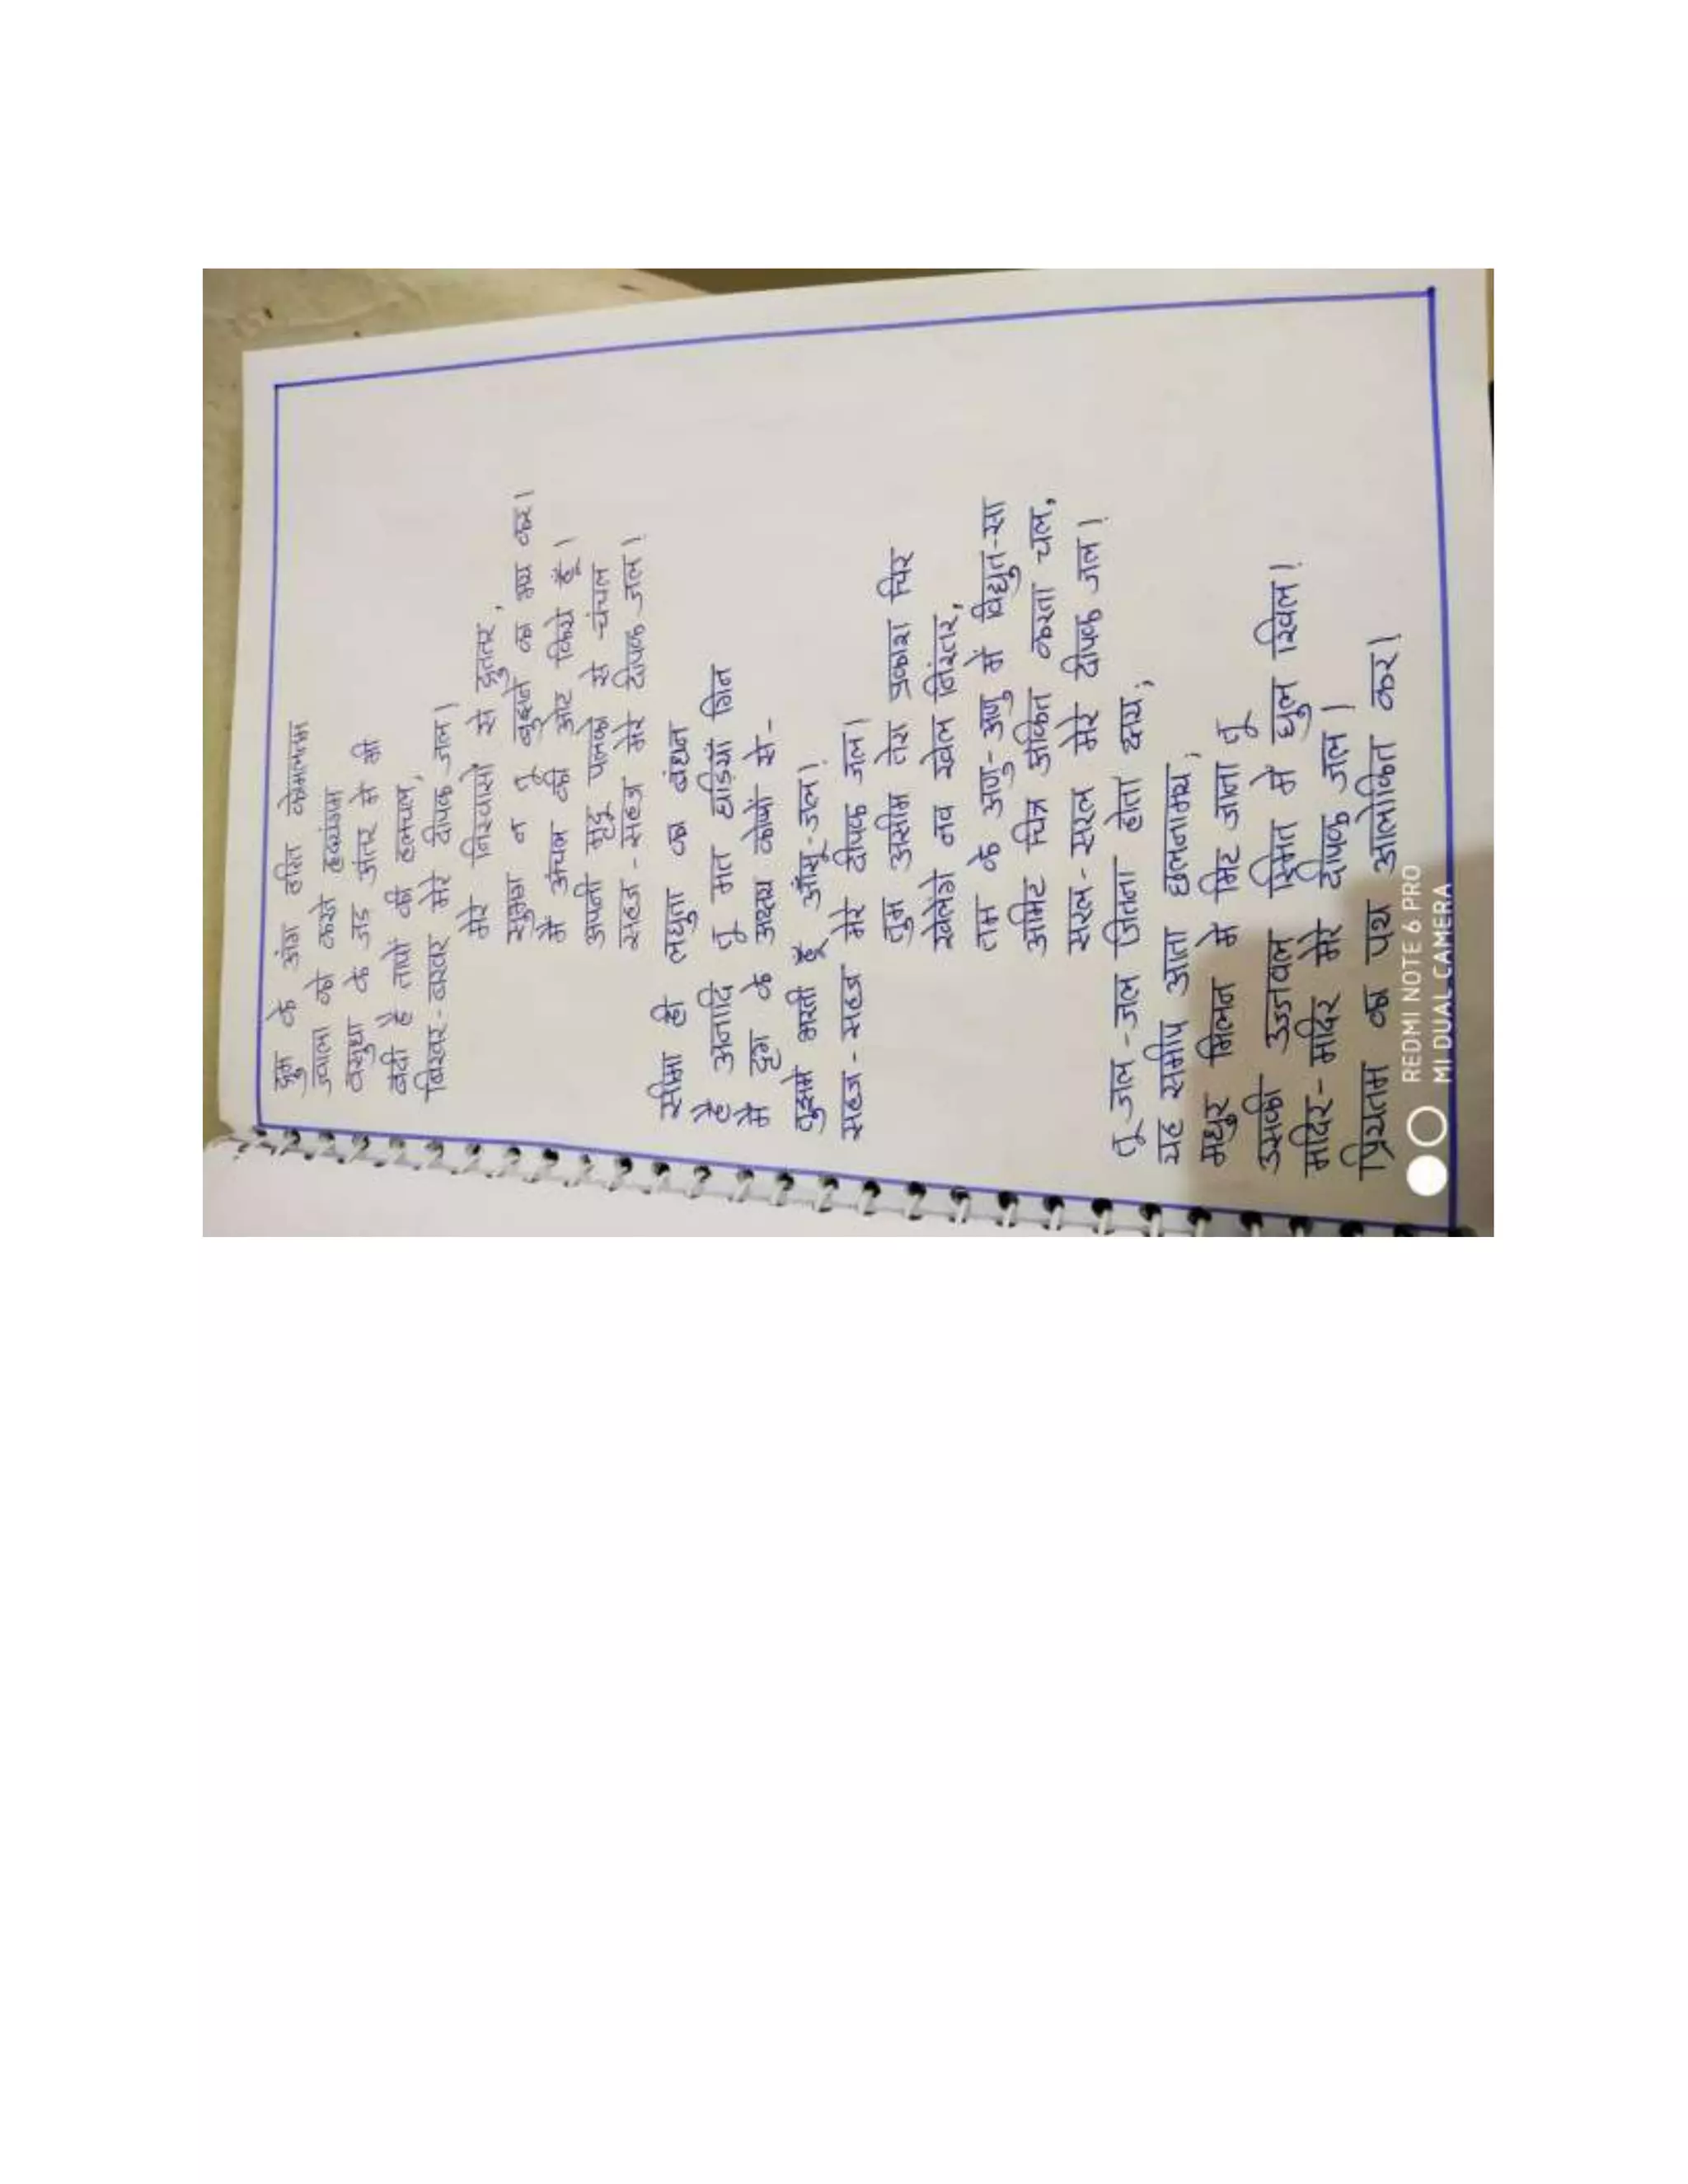 द्रुम के अंग हरित कोमलतम
ज्वाला को करते हृदयंगम
वसुधा के जड अंतर मे भी
बंदी है तापों की हलचल,
बिखर-बखर मेरे दीपक जल।
मेरे निस्वासों से द्रुततर,
सुभग न तू बुझने का भय कर।
मैं अंचल की ओट किये हूँ।
अपनी मृदु पलकों से चंचल
सहज-सहज मेरे दीपक जल!
सीमा ही लघुता का बंधन
है अनादि तू मत घड़ियाँ गिन
मैं दृग के अक्षय कोषों से-
तुझमे भरती हूँ आँसू-जल!
सहज-सहज मेरे दीपक जल।
तुम असीम तेरा प्रकाश चिर
खेलेगे नव खेल निरंतर,
तम के अणु-अणु में विद्युत-सा
अमिट चित्र अंकित करता चल,
सरल-सरल मेरे दीपक जल!
तू जल-जल जितना होता क्षय,
यह समीप आता छलनामय,
मधुर मिलन मे मिट जाना तू
उसकी उज्जवल स्मित में घुल खिल!
मदिर-मदिर मेरे दीपक जल!
प्रियतम का पथ आलोकित कर!
REDMI NOTE 6 PRO
MI DUAL CAMERA